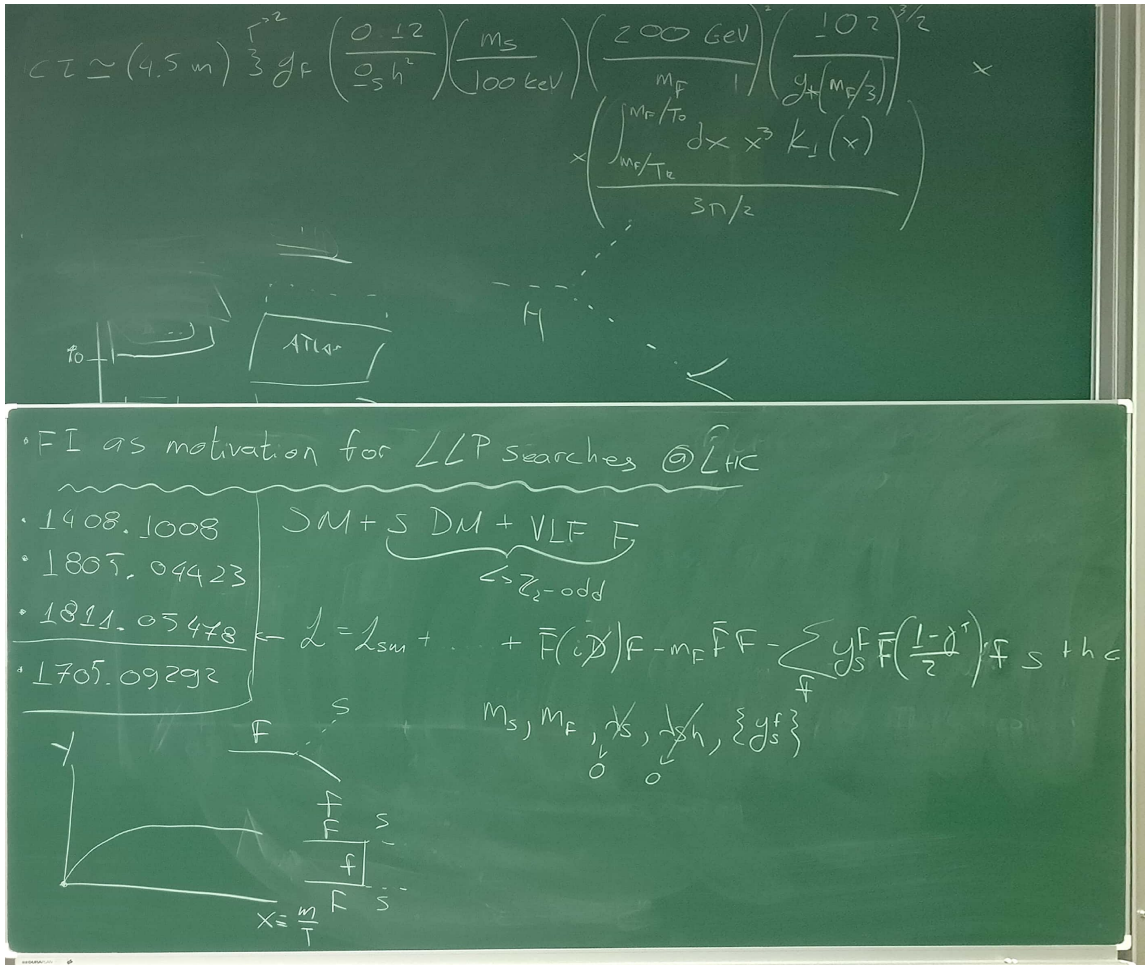 cτ ≃ (4.5 m) ξ g_F (0.12 / Ω_s h²) (m_s / 100 keV) (200 GeV / m_F)² (102 / g_*(m_F/3))^{3/2} ×
× (∫_{m_F/T_R}^{m_F/T_0} dx x³ K_1(x) / 3π/2)
H
ATLAS
· FI as motivation for LLP searches @ LHC
· 1408.1008
· 1805.04423
· 1811.05478
· 1705.09292
SM + s DM + VLF F
↳ Z_2-odd
← L = L_SM + .... + F̄(iD̸)F - m_F F̄F - Σ_f y_s^f F̄((1-γ^5)/2) f s + h c
m_s, m_F, λ_s, λ_sh, {y_s^f}
0 0
F s
f
Y
x = m/T
F s
f
F s